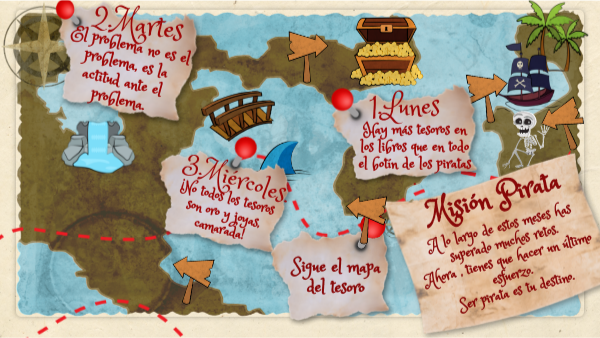 2.Martes
El problema no es el
problema, es la
actitud ante el
problema.
1.Lunes
Hay más tesoros en
los libros que en todo
el botín de los piratas
3.Miércoles.
¡No todos los tesoros
son oro y joyas,
camarada!
Sigue el mapa
del tesoro
Misión Pirata
A lo largo de estos meses has
superado muchos retos.
Ahora , tienes que hacer un último
esfuerzo.
Ser pirata es tu destino.